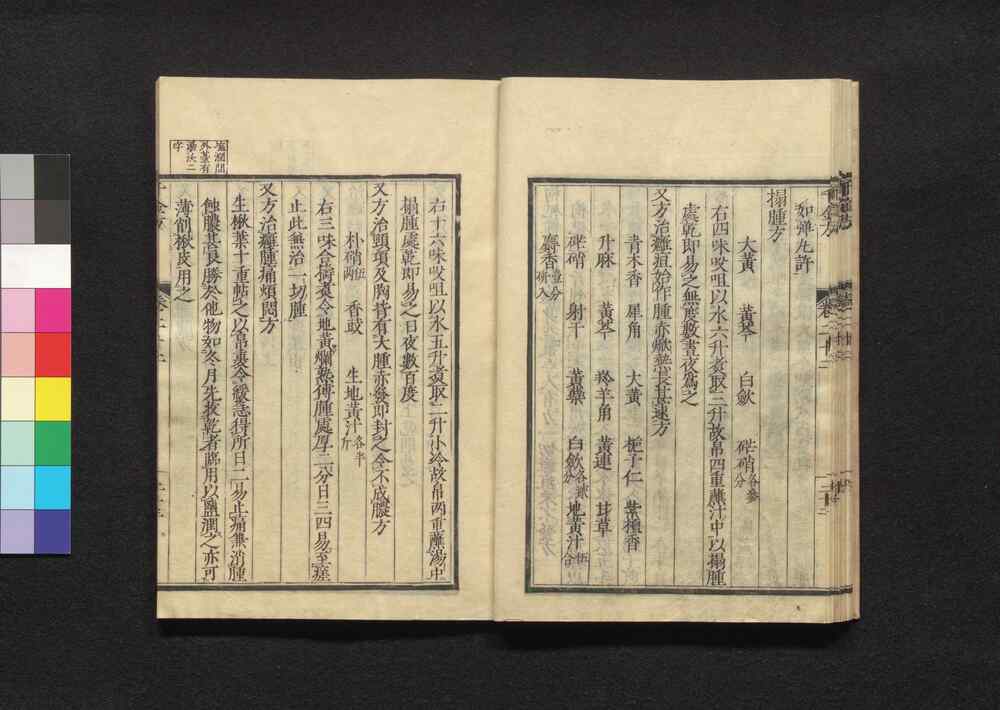 如彈丸許
搨腫方
大黃 黃芩 白歛 硭硝各參分
右四味㕮咀以水六升煑取三升故帛四重蘸汁中以搨腫
處乾即易之無度數晝夜爲之
又方治癰疽始作腫赤焮熱長甚速方
青木香 犀角 大黃 梔子仁 紫檀香
升麻 黃芩 羚羊角 黃連 甘草
硭硝 射干 黃蘗 白歛各貳分 地黃汁伍合
麝香壹分研入
右十六味㕮咀以水五升煑取二升小冷故帛兩重蘸湯中
搨腫處乾即易之日夜數百度
又方治頸項及胸背有大腫赤發即封之令不成膿方
朴硝伍兩 香豉 生地黃汁各半斤
右三味合擣爛令地黃爛熟傅腫處厚二分日三四易至瘥
止此無治一切腫
又方治癰腫痛煩悶方
生楸葉十重帖之以帛裹令緩急得所日二易止痛無消腫
蝕膿甚良勝於他物如冬月先收乾者臨用以鹽潤之亦可
薄削楸皮用之
千金方
卷二十二
鹽潤間
外臺有
湯沃二
字